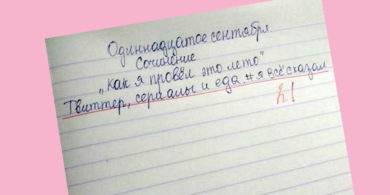 Одиннадцатое сентября.
Сочинение
„Как я провёл это лето"
Твиттер, сериалы и еда # я всё сказал
2!